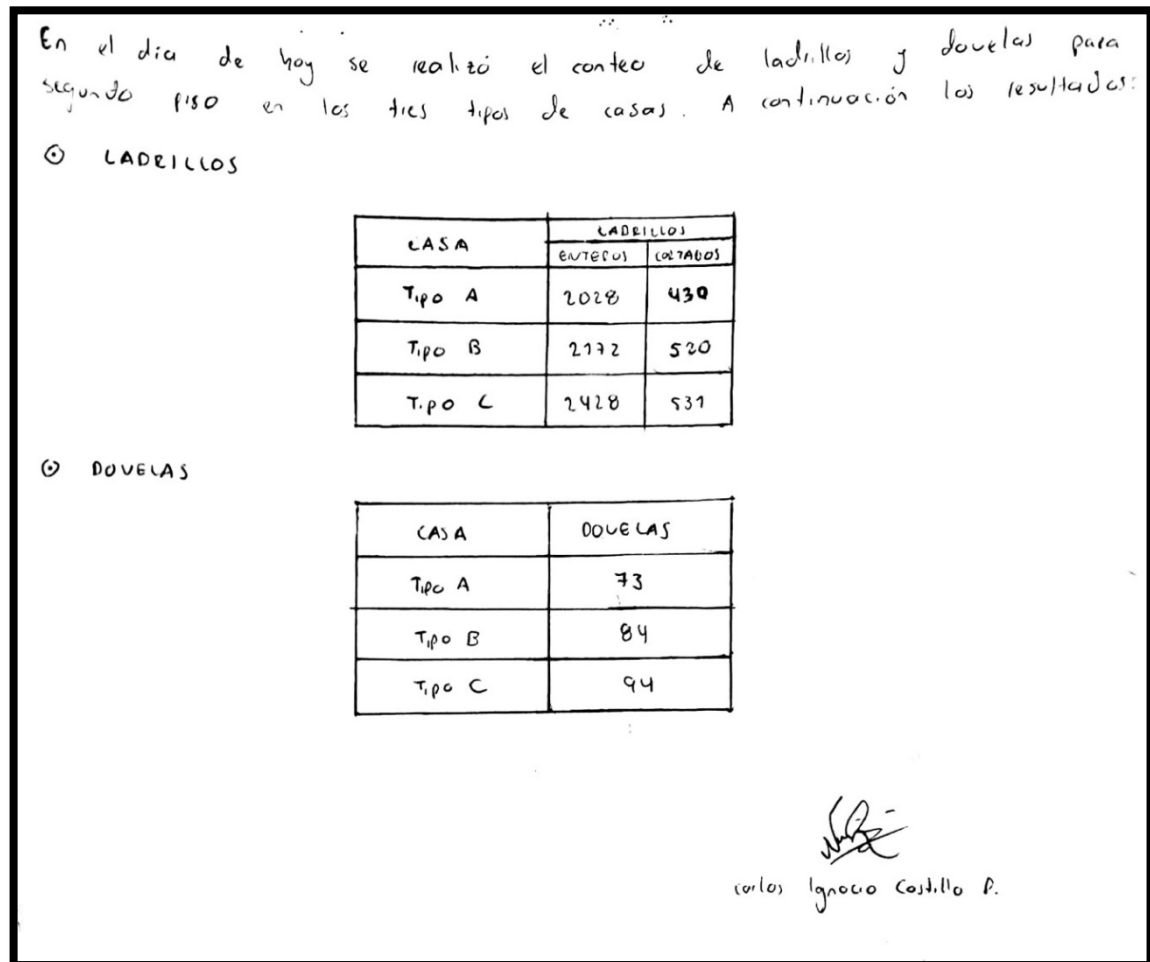 En el día de hoy se realizó el conteo de ladrillos y dovelas para
segundo piso en los tres tipos de casas. A continuación los resultados:
LADRILLOS
CASA LADRILLOS
ENTEROS CORTADOS
Tipo A 2028 430
Tipo B 2172 520
Tipo C 2428 531
DOVELAS
CASA DOVELAS
Tipo A 73
Tipo B 84
Tipo C 94
Carlos Ignacio Castillo P.